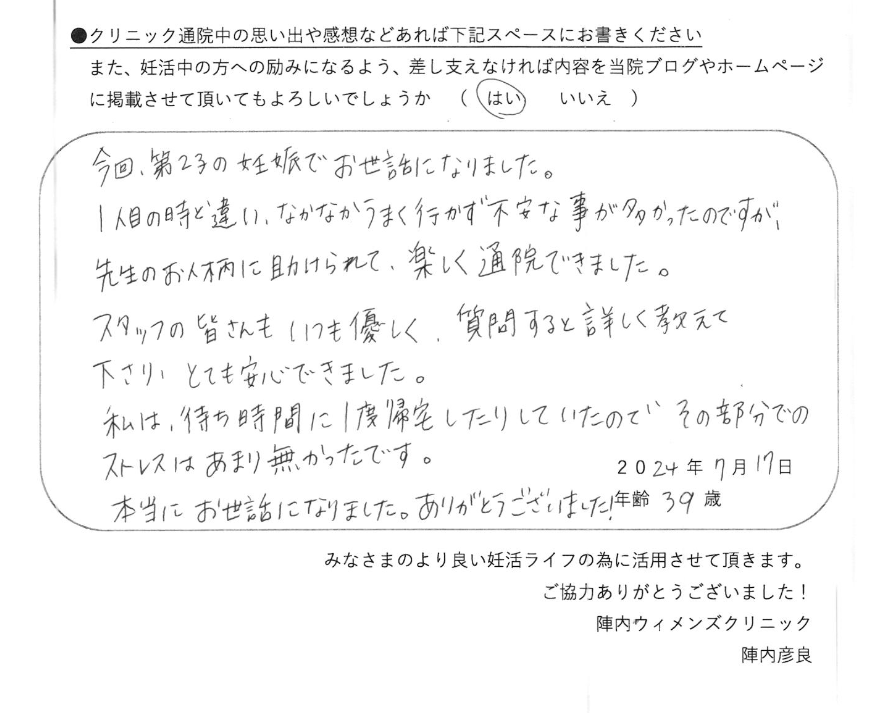 ●クリニック通院中の思い出や感想などあれば下記スペースにお書きください
また、妊活中の方への励みになるよう、差し支えなければ内容を当院ブログやホームページ
に掲載させて頂いてもよろしいでしょうか （ はい いいえ ）
今回、第2子の妊娠でお世話になりました。
1人目の時と違い、なかなかうまく行かず不安な事が多かったのですが、
先生のお人柄に助けられて、楽しく通院できました。
スタッフの皆さんもいつも優しく、質問すると詳しく教えて
下さり、とても安心できました。
私は、待ち時間に1度帰宅したりしていたので、その部分での
ストレスはあまり無かったです。
2024年7月17日
本当にお世話になりました。ありがとうございました!
年齢 39歳
みなさまのより良い妊活ライフの為に活用させて頂きます。
ご協力ありがとうございました！
陣内ウィメンズクリニック
陣内彦良